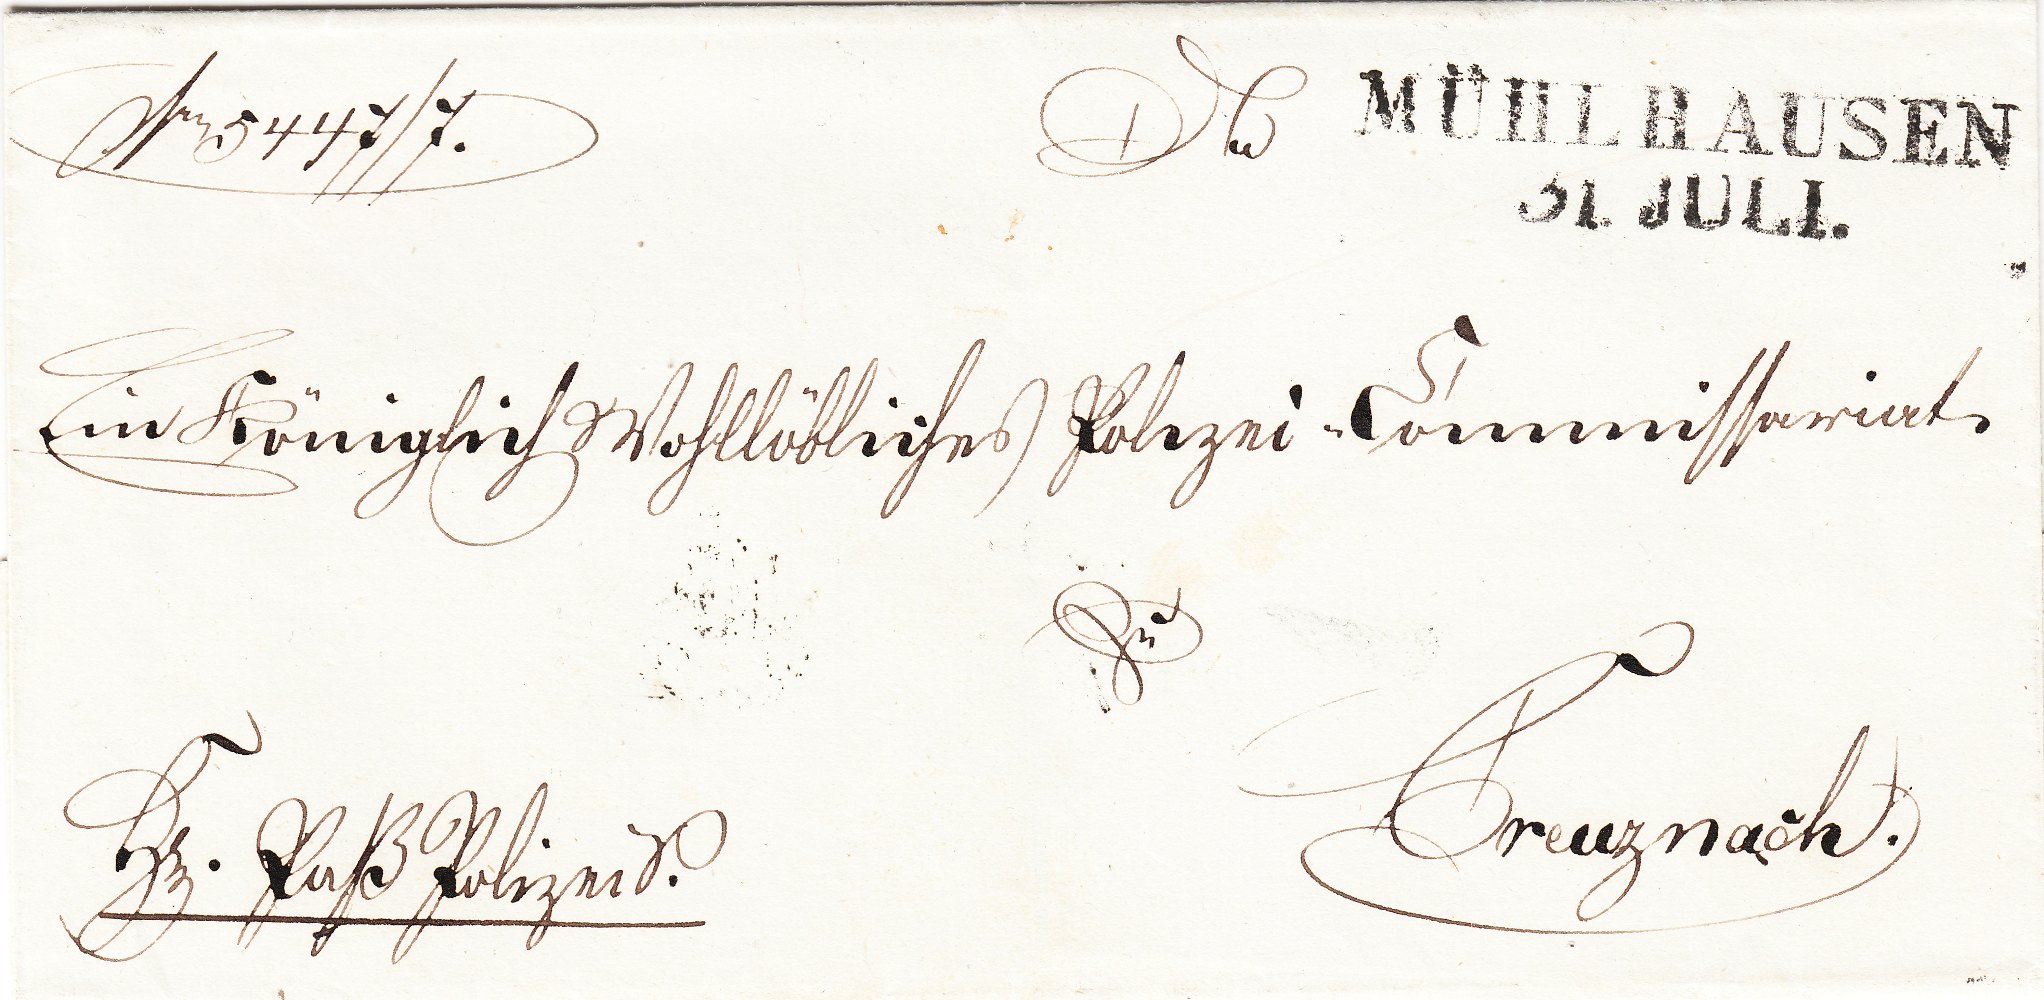 Nro 5447/7. An MÜHLHAUSEN
31. JULI.
Ein Königlich Wohllöbliches Polizei-Commissariat
zu
Creuznach.
Paß Polizei S.